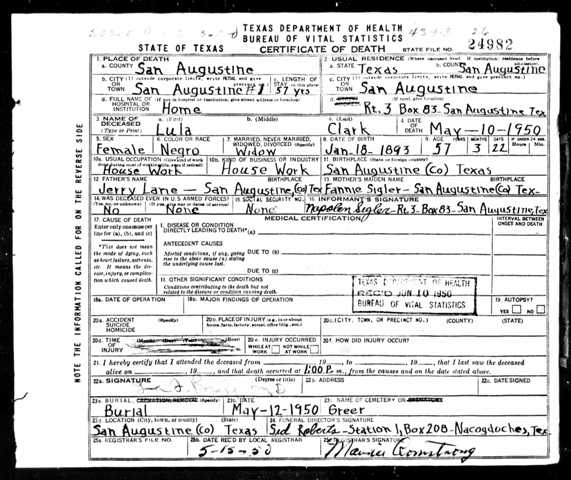 TEXAS DEPARTMENT OF HEALTH
BUREAU OF VITAL STATISTICS
STATE OF TEXAS CERTIFICATE OF DEATH STATE FILE NO. 24982
1. PLACE OF DEATH 2. USUAL RESIDENCE (Where deceased lived. If institution: residence before admission)
a. COUNTY San Augustine a. STATE Texas b. COUNTY San Augustine
b. CITY (If outside corporate limits, write RURAL and give OR TOWN San Augustine #1 c. LENGTH OF STAY 57 yrs c. CITY (If outside corporate limits, write RURAL and give precinct no.) OR TOWN San Augustine
d. FULL NAME OF HOSPITAL OR INSTITUTION Home d. Rt. 3 Box 83- San Augustine Tex
3. NAME OF DECEASED (Type or Print) a. (First) Lula b. (Middle) c. (Last) Clark 4. DATE OF DEATH May-10-1950
5. SEX Female 6. COLOR OR RACE Negro 7. MARRIED, NEVER MARRIED, WIDOWED, DIVORCED (Specify) Widow 8. DATE OF BIRTH Jan-18-1893 9. AGE 57 MONTHS 3 DAYS 22 Hours Min.
10a. USUAL OCCUPATION House Work 10b. KIND OF BUSINESS OR INDUSTRY House Work 11. BIRTHPLACE (State or foreign country) San Augustine (Co) Texas
12. FATHER'S NAME BIRTHPLACE 13. MOTHER'S MAIDEN NAME BIRTHPLACE
Jerry Lane - San Augustine, (Co) Tex Fannie Sigler - San Augustine (Co) Tex-
14. WAS DECEASED EVER IN U.S. ARMED FORCES? No None 15. SOCIAL SECURITY NO. None 16. INFORMANT'S SIGNATURE Napoleon Sigler - Rt. 3- Box 83- San Augustine, Tex
17. CAUSE OF DEATH MEDICAL CERTIFICATION INTERVAL BETWEEN ONSET AND DEATH
Enter only one cause per line for (a), (b), and (c) I. DISEASE OR CONDITION DIRECTLY LEADING TO DEATH* (a)
*This does not mean the mode of dying, such as heart failure, asthenia, etc. It means the disease, injury, or complication which caused death.
ANTECEDENT CAUSES
Morbid conditions, if any, giving rise to the above cause (a) stating the underlying cause last. DUE TO (b)
DUE TO (c)
II. OTHER SIGNIFICANT CONDITIONS
Conditions contributing to the death but not related to the disease or condition causing death.
TEXAS DEPARTMENT OF HEALTH
REC'D JUN 10 1950
BUREAU OF VITAL STATISTICS
18a. DATE OF OPERATION 18b. MAJOR FINDINGS OF OPERATION 19. AUTOPSY? YES NO
20a. ACCIDENT SUICIDE HOMICIDE (Specify) 20b. PLACE OF INJURY (e.g., in or about home, farm, factory, street, office bldg., etc.) 20c. (CITY, TOWN, OR PRECINCT NO.) (COUNTY) (STATE)
20d. TIME OF INJURY 20e. INJURY OCCURRED WHILE AT WORK NOT WHILE AT WORK 20f. HOW DID INJURY OCCUR?
21. I hereby certify that I attended the deceased from , 19 , to , 19 , that I last saw the deceased
alive on , 19 , and that death occurred at 1:00 P. m., from the causes and on the date stated above.
22a. SIGNATURE (Degree or title) 22b. ADDRESS 22c. DATE SIGNED
23a. BURIAL, CREMATION, REMOVAL (Specify) Burial 23b. DATE May-12-1950 23c. NAME OF CEMETERY OR CREMATORY Greer
23d. LOCATION (City, town, or county) (State) San Augustine (Co) Texas 24. FUNERAL DIRECTOR'S SIGNATURE Sid Roberts - Station 1, Box 208 - Nacogdoches, Tex.
25a. REGISTRAR'S FILE NO. 25b. DATE REC'D BY LOCAL REGISTRAR 5-15-50 25c. REGISTRAR'S SIGNATURE Armstrong
NOTE THE INFORMATION CALLED FOR ON THE REVERSE SIDE